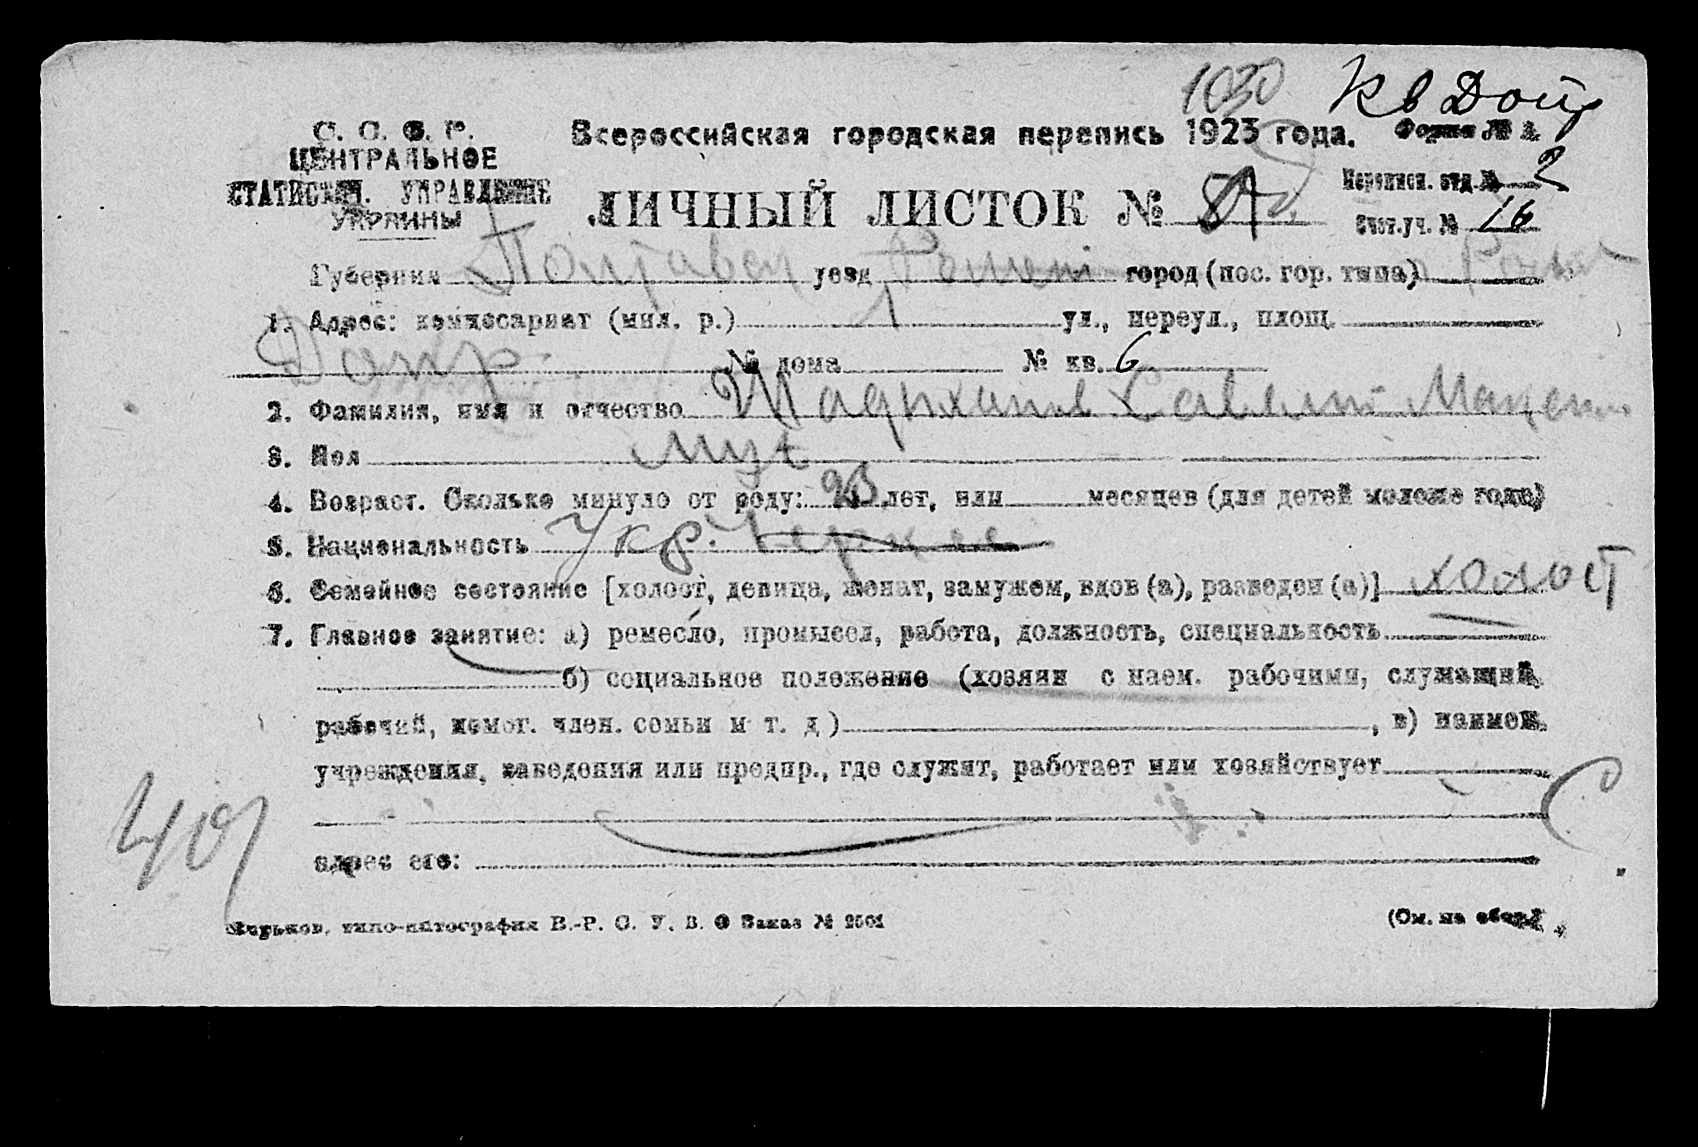 1030 Кв Допр
С. С. С. Р. Всероссийская городская перепись 1923 года. Форма №
ЦЕНТРАЛЬНОЕ
СТАТИСТИЧ. УПРАВЛЕНИЕ ЛИЧНЫЙ ЛИСТОК № Переписн. отд. № 2
УКРАИНЫ Счет. уч. № 16
Губерния Полтавск уезд город (пос. гор. типа)
1. Адрес: комиссариат (мил. р.) 1 ул., переул., площ.
Допр № дома № кв. 6
2. Фамилия, имя и отчество
3. Пол муж
4. Возраст. Сколько минуло от роду: 23 лет, или месяцев (для детей моложе года)
5. Национальность Укр.
6. Семейное состояние [холост, девица, женат, замужем, вдов (а), разведен (а)] холост
7. Главное занятие: а) ремесло, промысел, работа, должность, специальность
б) социальное положение (хозяин с наем. рабочими, служащий,
рабочий, помог. член. семьи и т. д ) , в) наимен.
учреждения, заведения или предпр., где служит, работает или хозяйствует
адрес его:
Харьков. типо-литография В.-Р. С. У. В. О Заказ № 2501 (См. на обор.)